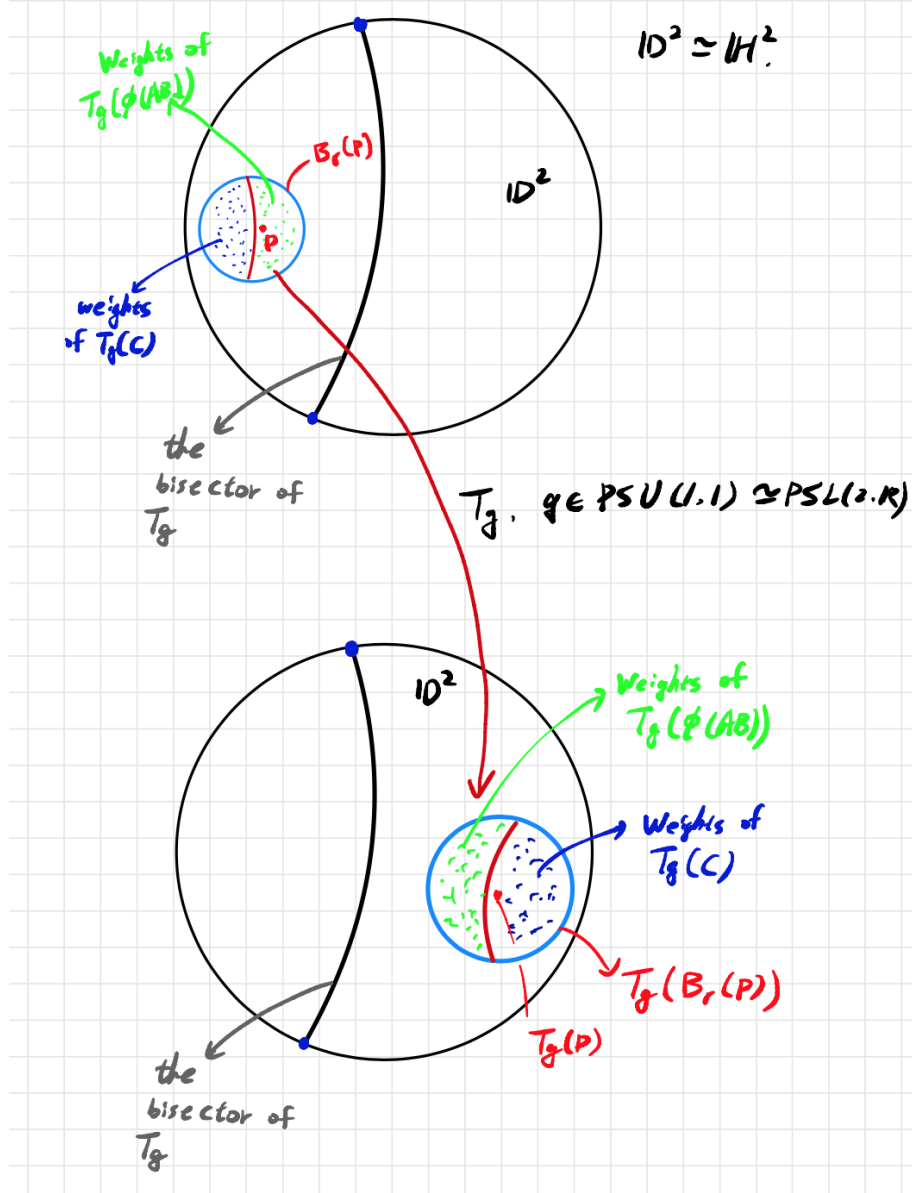 Weights of
Tg(ϕ(AB))
ID² ≃ IH².
Bᵣ(P)
ID²
P
weights
of Tg(C)
the
bisector of
Tg
Tg, g ∈ PSU(1.1) ≃ PSL(2.IR)
ID²
Weights of
Tg(ϕ(AB))
Weights of
Tg(C)
Tg(Bᵣ(P))
Tg(P)
the
bisector of
Tg